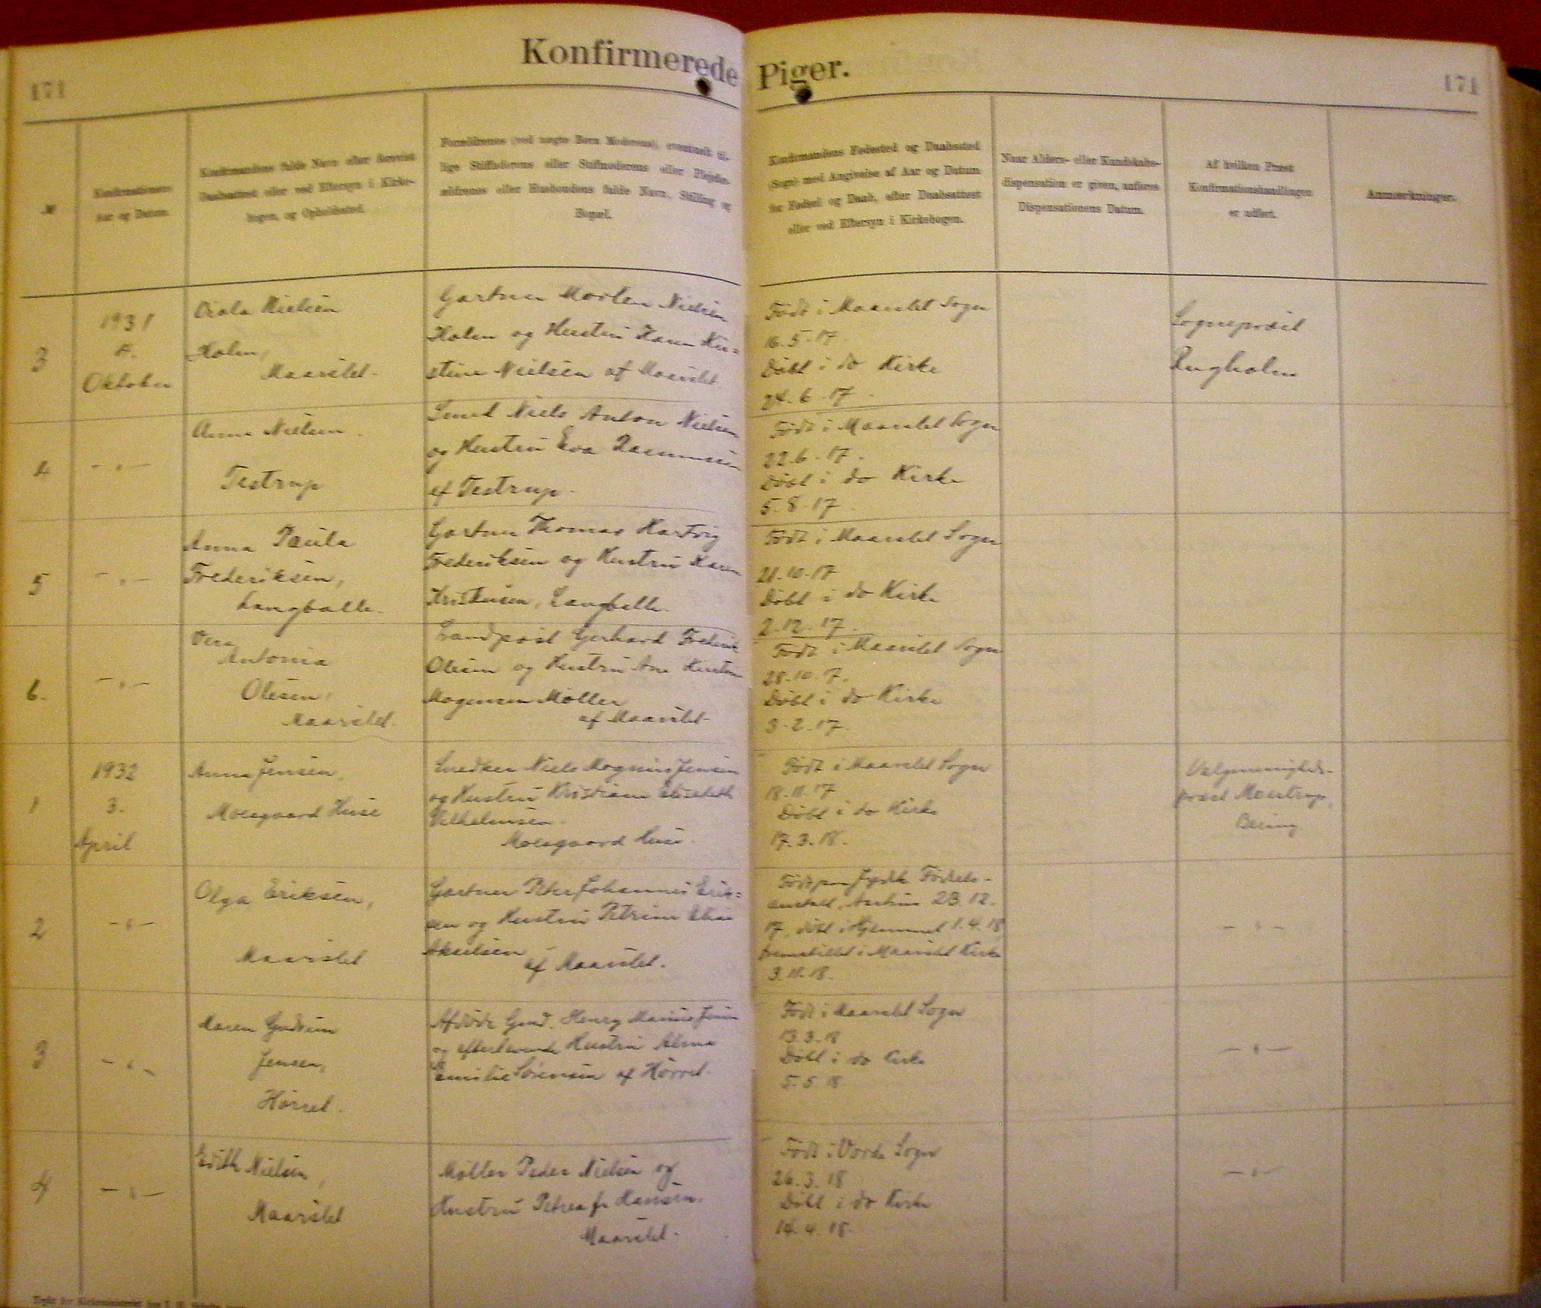 Konfirmerede Piger.
171
171
№
Konfirmationens
Aar og Datum.
Konfirmandens fulde Navn efter forevist
Daabsattest eller ved Eftersyn i Kirke-
bogen, og Opholdssted.
Forældrenes (ved uægte Børn Moderens), eventuelt til-
lige Stiffaderens eller Stifmoderens eller Plejefor-
ældrenes eller Husbondens fulde Navn, Stilling og
Bopæl.
Konfirmandens Fødested og Daabssted
(Sogn) med Angivelse af Aar og Datum
for Fødsel og Daab, efter Daabsattest
eller ved Eftersyn i Kirkebogen.
Naar Alders- eller Kundskabs-
dispensation er given, anføres
Dispensationens Datum.
Af hvilken Præst
Konfirmationshandlingen
er udført.
Anmærkninger.
3
1931
4.
Oktober
Viola Nielsen
Holm,
Maarslet.
Gartner Morten Nielsen
Holm og Hustru Karen Kir=
stine Nielsen af Maarslet.
Født i Maarslet Sogn
16.5.17.
Døbt i do Kirke
24.6.17.
Sognepræst
Rugholm
4
- " -
Anna Nielsen.
Testrup
Smed Niels Anton Nielsen
og Hustru Eva Rasmussen
af Testrup.
Født i Maarslet Sogn
22.6.17.
Døbt i do Kirke
5.8.17.
5
- " -
Anna Paula
Frederiksen,
Langballe.
Gartner Thomas Hartvig
Frederiksen og Hustru Karen
Kristensen, Langballe.
Født i Maarslet Sogn
21.10.17
Døbt i do Kirke
2.12.17.
6.
- " -
Vera
Antonia
Olesen,
Maarslet.
Landpost Gerhard Frederik
Olesen og Hustru Ane Kirstine
Mogensen Møller
af Maarslet
Født i Maarslet Sogn
28.10.17.
Døbt i do Kirke
3.2.17.
1
1932
3.
April
Anna Jensen,
Moesgaard Huse
Snedker Niels Mogens Jensen
og Hustru Kristiane Elisabeth
Vilhelmsen.
Moesgaard Huse.
Født i Maarslet Sogn
18.11.17
Døbt i do Kirke
17.3.18.
Valgmenigheds-
præst Moustrup,
Bering
2
- " -
Olga Eriksen,
Maarslet
Gartner Peter Johannes Erik=
sen og Hustru Petrine
Akselsen
af Maarslet.
Født paa Jydsk Fødsels-
anstalt, Aarhus 23.12.
17, døbt i Hjemmet 1.4.18
fremstillet i Maarslet Kirke
3.11.18.
- " -
3
- " -
Maren Gudrun
Jensen,
Hørret.
Afdøde Gmd. Henry Marius Jensen
og efterlevende Hustru Alma
Emilie Sørensen af Hørret.
Født i Maarslet Sogn
13.3.18
Døbt i do Kirke
5.5.18
- " -
4
- " -
Edith Nielsen,
Maarslet
Møller Peder Nielsen og
Hustru Petrea f. Hansen.
Maarslet.
Født i Vorde Sogn
26.3.18
Døbt i do Kirke
14.4.18.
- " -